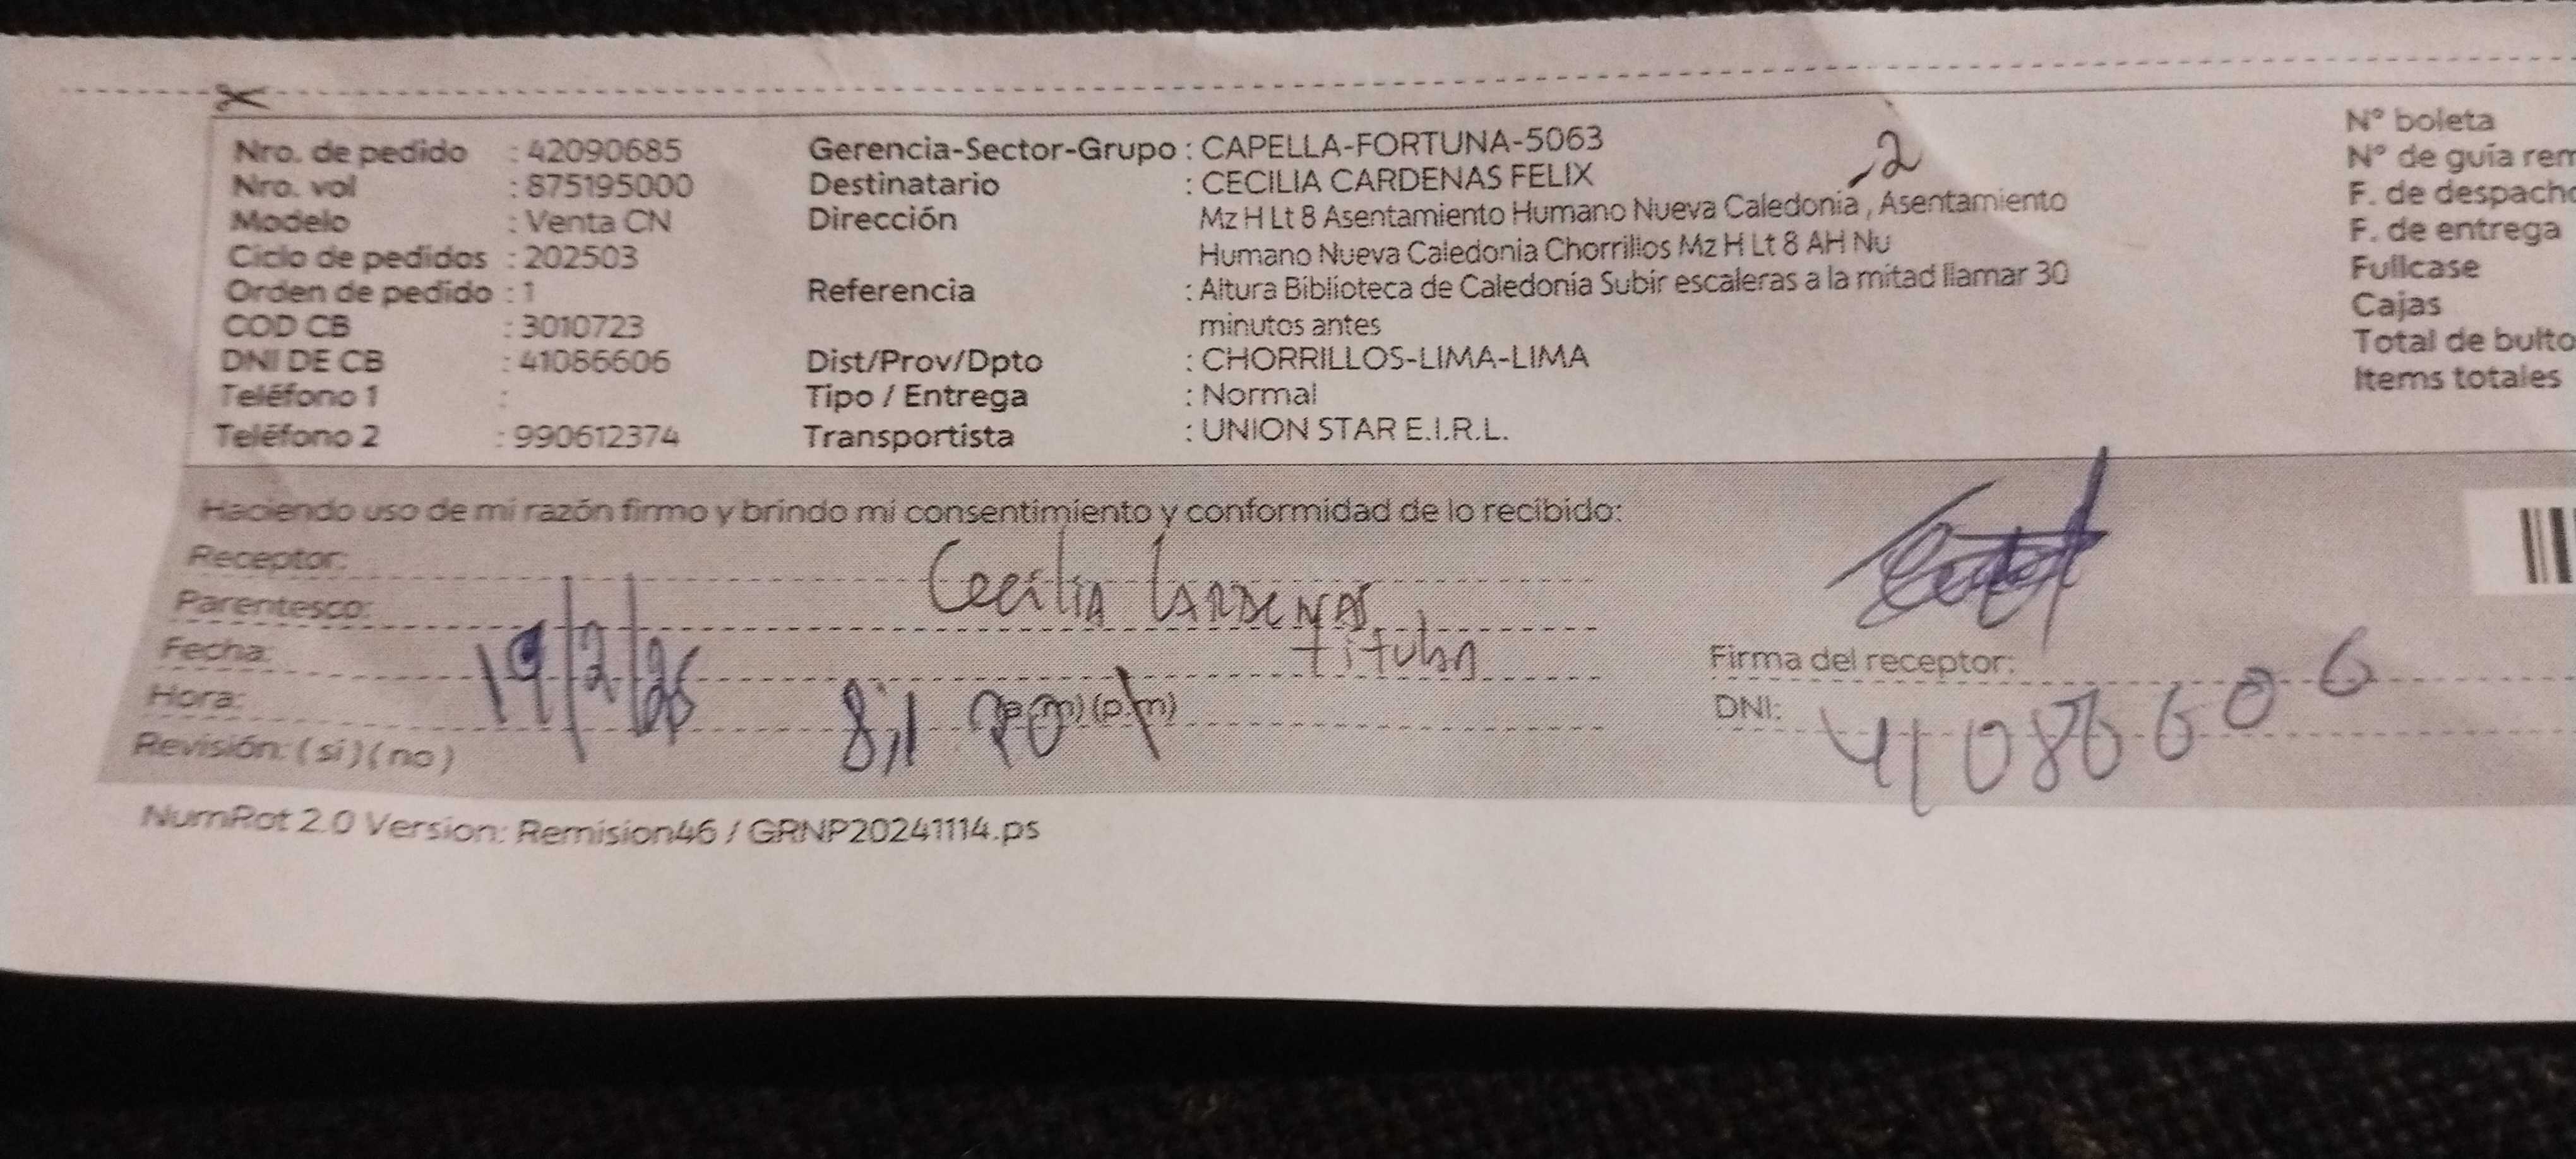 Nro. de pedido : 42090685 Gerencia-Sector-Grupo : CAPELLA-FORTUNA-5063 Nº boleta
Nro. vol : 875195000 Destinatario : CECILIA CARDENAS FELIX , 2 Nº de guía rem
Modelo : Venta CN Dirección Mz H Lt 8 Asentamiento Humano Nueva Caledonia , Asentamiento F. de despacho
Ciclo de pedidos : 202503 Humano Nueva Caledonia Chorrillos Mz H Lt 8 AH Nu F. de entrega
Orden de pedido : 1 Referencia : Altura Biblioteca de Caledonia Subir escaleras a la mitad llamar 30 Fullcase
COD CB : 3010723 minutos antes Cajas
DNI DE CB : 41086606 Dist/Prov/Dpto : CHORRILLOS-LIMA-LIMA Total de bulto
Teléfono 1 : Tipo / Entrega : Normal Items totales
Teléfono 2 : 990612374 Transportista : UNION STAR E.I.R.L.
Haciendo uso de mi razón firmo y brindo mi consentimiento y conformidad de lo recibido:
Receptor: Cecilia CARDENAS
Parentesco: titular
Fecha: 19/2/ Firma del receptor:
Hora: (p.m) DNI: 41086606
Revisión: ( si ) ( no )
NumRot 2.0 Version: Remision46 / GRNP20241114.ps